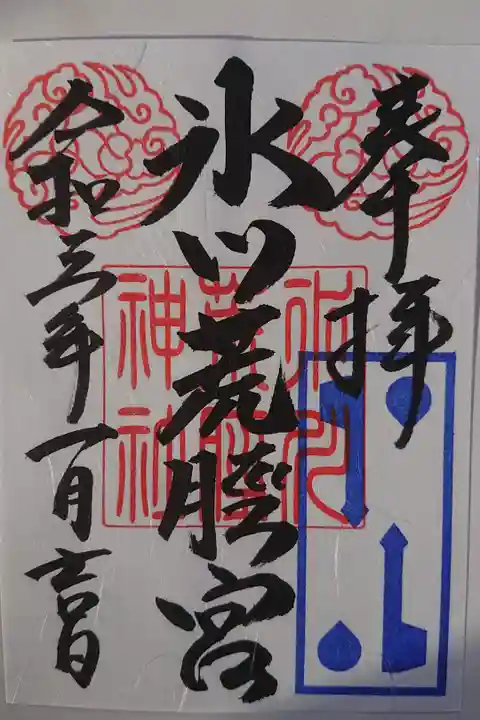 奉拝
氷川荒脛宮
令和三年一月吉日
氷川
荒脛
神社